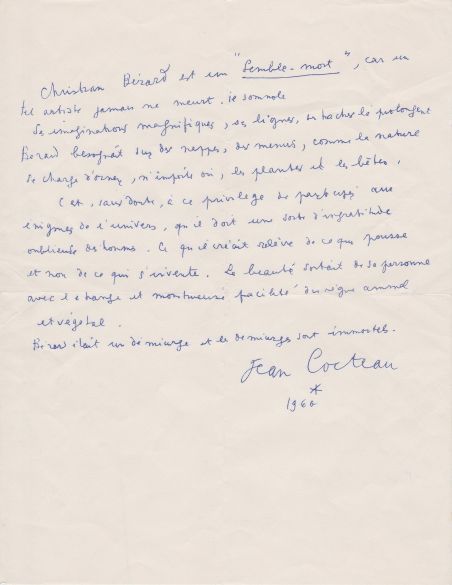 Christian Bérard est un "Semble-mort", car un
tel artiste jamais ne meurt.
Ses imaginations magnifiques, ses lignes, ses taches le prolongent
Bérard besognait sur des nappes, des menus, comme la nature
se charge d'orner, n'importe où, les plantes et les bêtes.
C'est, sans doute, à ce privilège de participer aux
énigmes de l'univers, qu'il doit une sorte d'ingratitude
oublieuse des hommes. Ce qu'il créait relève de ce qui pousse
et non de ce qui s'invente. La beauté sortait de sa personne
avec l'étrange et monstrueuse facilité du règne animal
et végétal.
Bérard était un démiurge et les démiurges sont immortels.
Jean Cocteau
*
1960